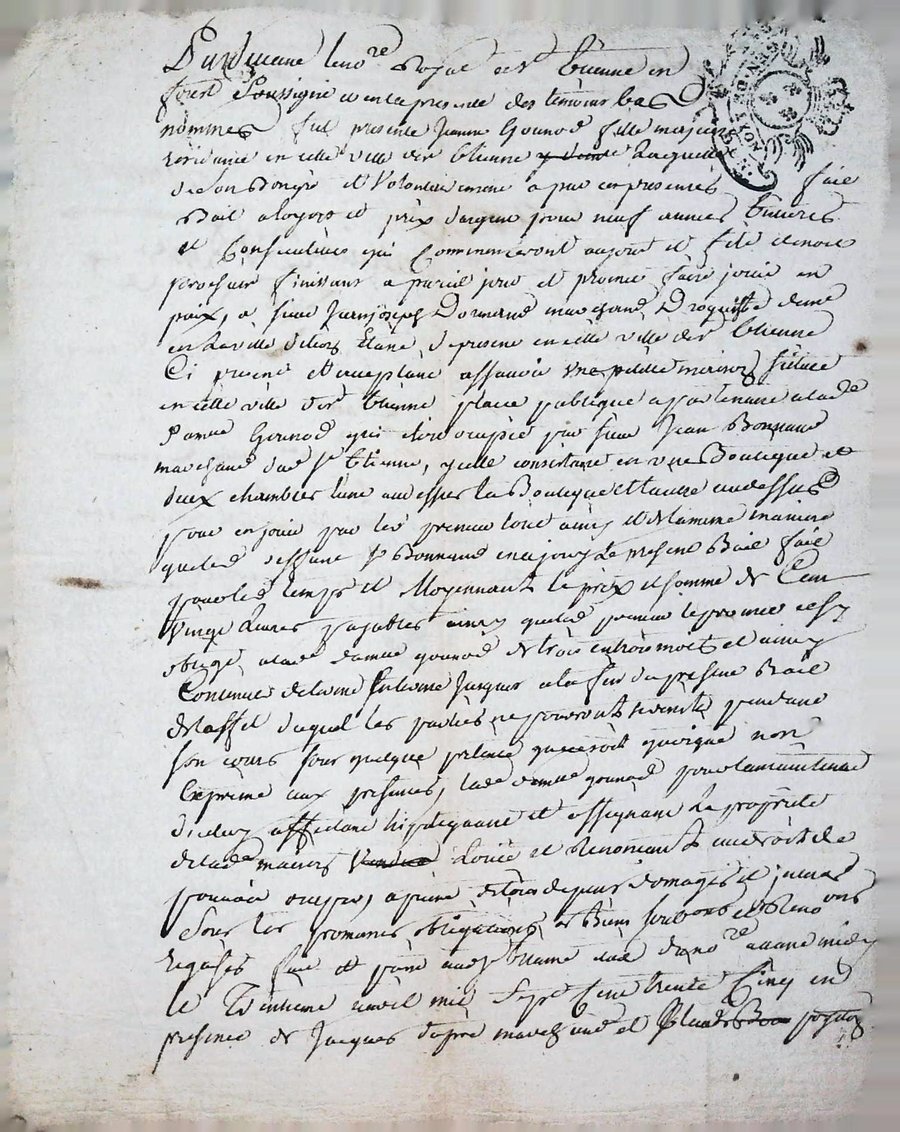 Pardevant le no.re Royal de St Etienne en
forest Soussigné et en la presence des temoins bas
nommes fut presente Jeanne Gounod fille majeure
residante en cette ville de St Etienne laquelle
de Son Bongré et Volontairement a par ces presentes fait
Bail a loyers et prix d'argent pour neuf annees Entieres
et Consecutives qui Commenceront au jour et fête
prochain finissant a pareil jour et promet faire jouir en
paix, a sieur Jean joseph Dormand marchand Droguiste dem.t
en la ville de present en cette ville de St Etienne
Ci present et acceptant assavoir une petite maison Située
en cette ville de St Etienne place publique appartenante a lad.e
Damlle Gounod qui etoit occupée par sieur Jean Bonnand
marchand dud St Etienne, ycelle consistante en une Boutique et
deux chambres l'une au dessus la Boutique et l'autre au dessus
pour en jouir par led preneur tout ainsy et de la meme maniere
que led deffunt Sr Bonnand en a jouy Le present Bail fait
pour led temps et Moyennant le prix et somme de Cent
vingt Livres payables ainsy que led preneur le promet et sy
oblige a lad damlle gounod de trois en trois mois et ainsy
Continuer de terme En terme Jusques a la fin du present Bail
de l'effet duquel les parties ne pourront se departir pendant
son cours sous quelque pretexte que ce soit quoique non
Exprimé aux presentes, lad damlle gounod pour la maintenue
d'iceluy affectant hipotequant et assignant La proprieté
de lad.e maison Louée et Renoncant au droit de
pouvoir occuper, a peine de tous depens domages et interets
Sous les promesses obligations, et Biens soumissions et Renons
requises fait et passé aud St Etienne etude dud no.re avant midy
le Trentieme avril mil Sept Cent trente Cinq en
presence de Jacques dupré marchand et